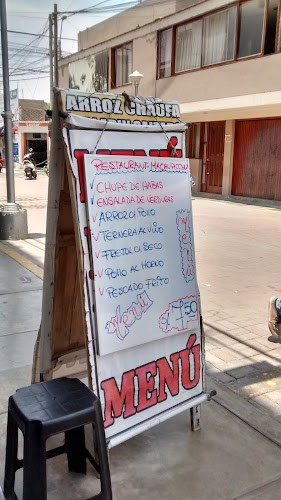 ARROZ CHAUFA
RESTAURANT MACHUPICCHU
CHUPE DE HABAS
ENSALADA DE VERDURAS
ARROZ C/ POLLO
TERNERA AL VINO
FREJOL C/ SECO
POLLO AL HORNO
PESCADO FRITO
Menú
Menú
S/. 7.50
MENÚ